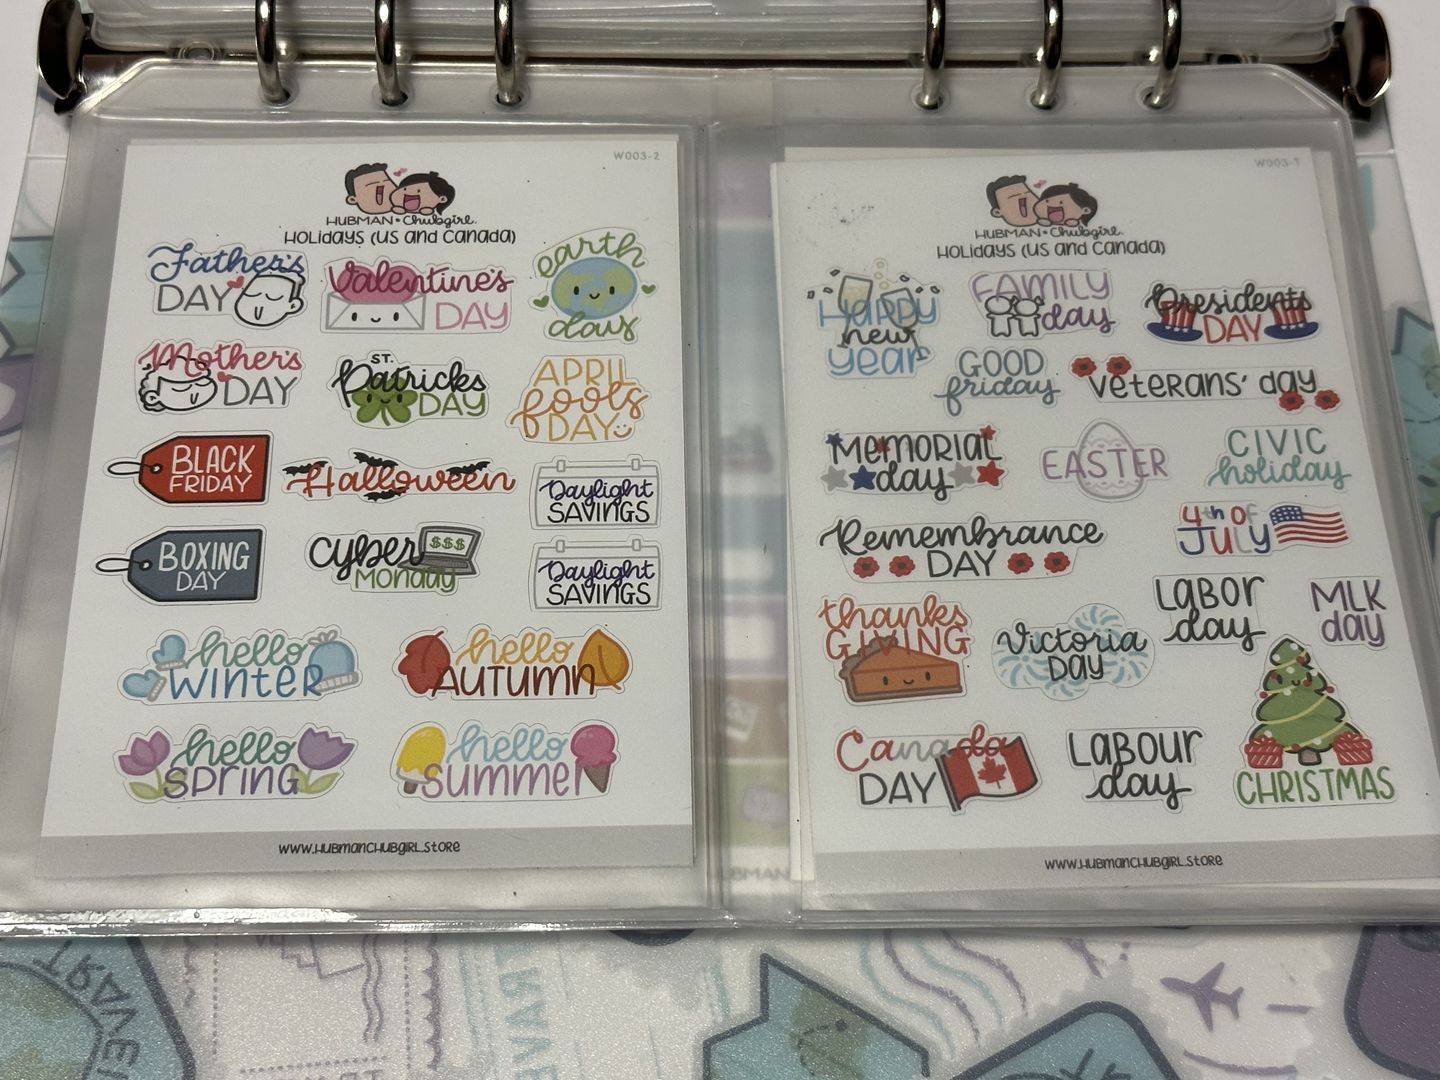 W003-2
HUBMAN • Chubgirl.
HOLIDAYS (US AND CANADA)
Father's
DAY
Valentine's
DAY
earth
day
Mother's
DAY
ST.
Patricks
DAY
APRIL
fools
DAY
BLACK
FRIDAY
Halloween
Daylight
SAVINGS
BOXING
DAY
cyber
$$$
Monday
Daylight
SAVINGS
hello
WINTER
hello
AUTUMN
hello
SPRING
hello
summer
www.HUBMANCHUBGIRL.STORE
W003-1
HUBMAN • Chubgirl.
HOLIDAYS (US AND CANADA)
HAPPY
new
year
FAMILY
day
Presidents
DAY
GOOD
friday
veterans' day
MEMORIAL
day
EASTER
CIVIC
holiday
Remembrance
DAY
4th of
JULY
thanks
GIVING
Victoria
DAY
LABOR
day
MLK
day
Canada
DAY
LABOUR
day
CHRISTMAS
www.HUBMANCHUBGIRL.STORE
TRAVEL